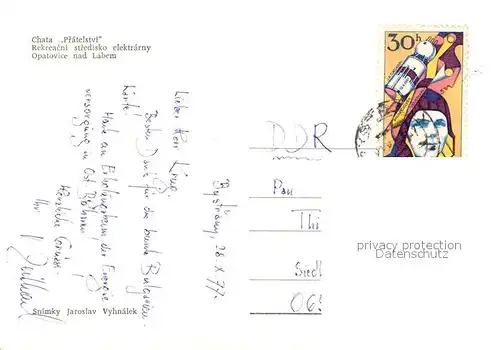 Chata „Přátelství"
Rekreační středisko elektrárny
Opatovice nad Labem
30 h
DDR
Pan
Thi
Siedl
privacy protection
Datenschutz
Lieber Herr
Besten Dank für die bunte
Karte!
Habe ein Erholungsheim der Energie
versorgung in Ost Böhmen
Herzliche Grüsse
Ihr
Bystřany, 28. X. 77.
Snímky Jaroslav Vyhnálek